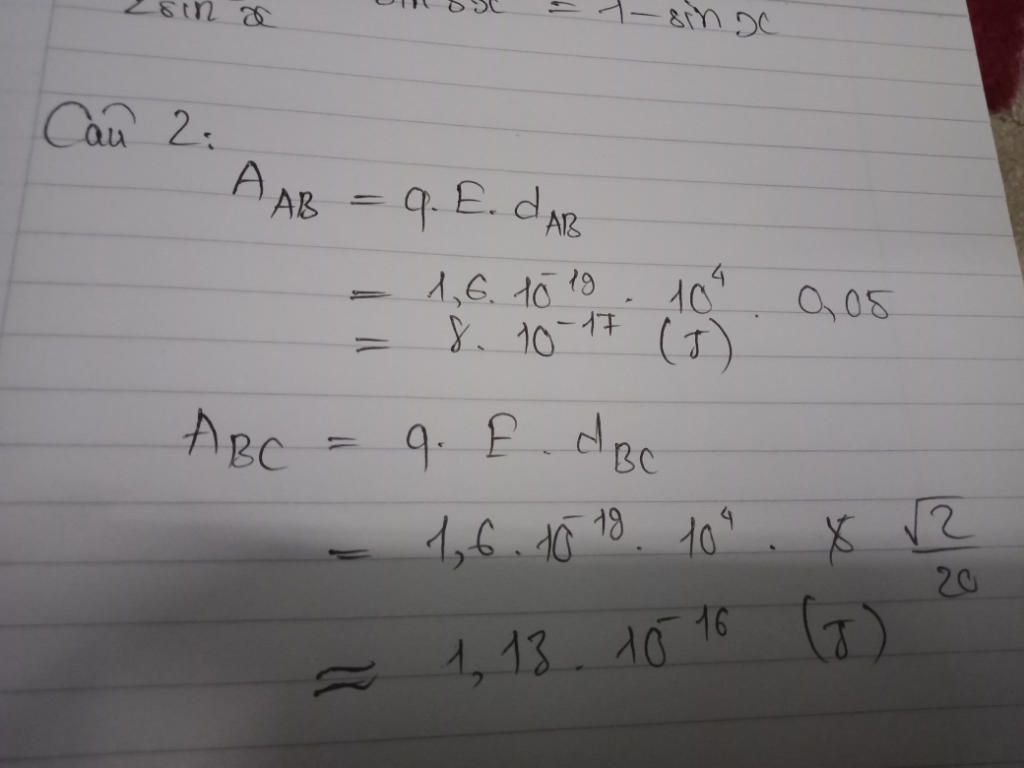 2sin x sin 3x = 1 - sin x
Câu 2:
A_AB = q. E. d_AB
= 1,6. 10^-19 . 10^4 . 0,05
= 8. 10^-17 (J)
A_BC = q. E . d_BC
= 1,6 . 10^-19 . 10^4 . √2/20
≈ 1,13 . 10^-16 (J)